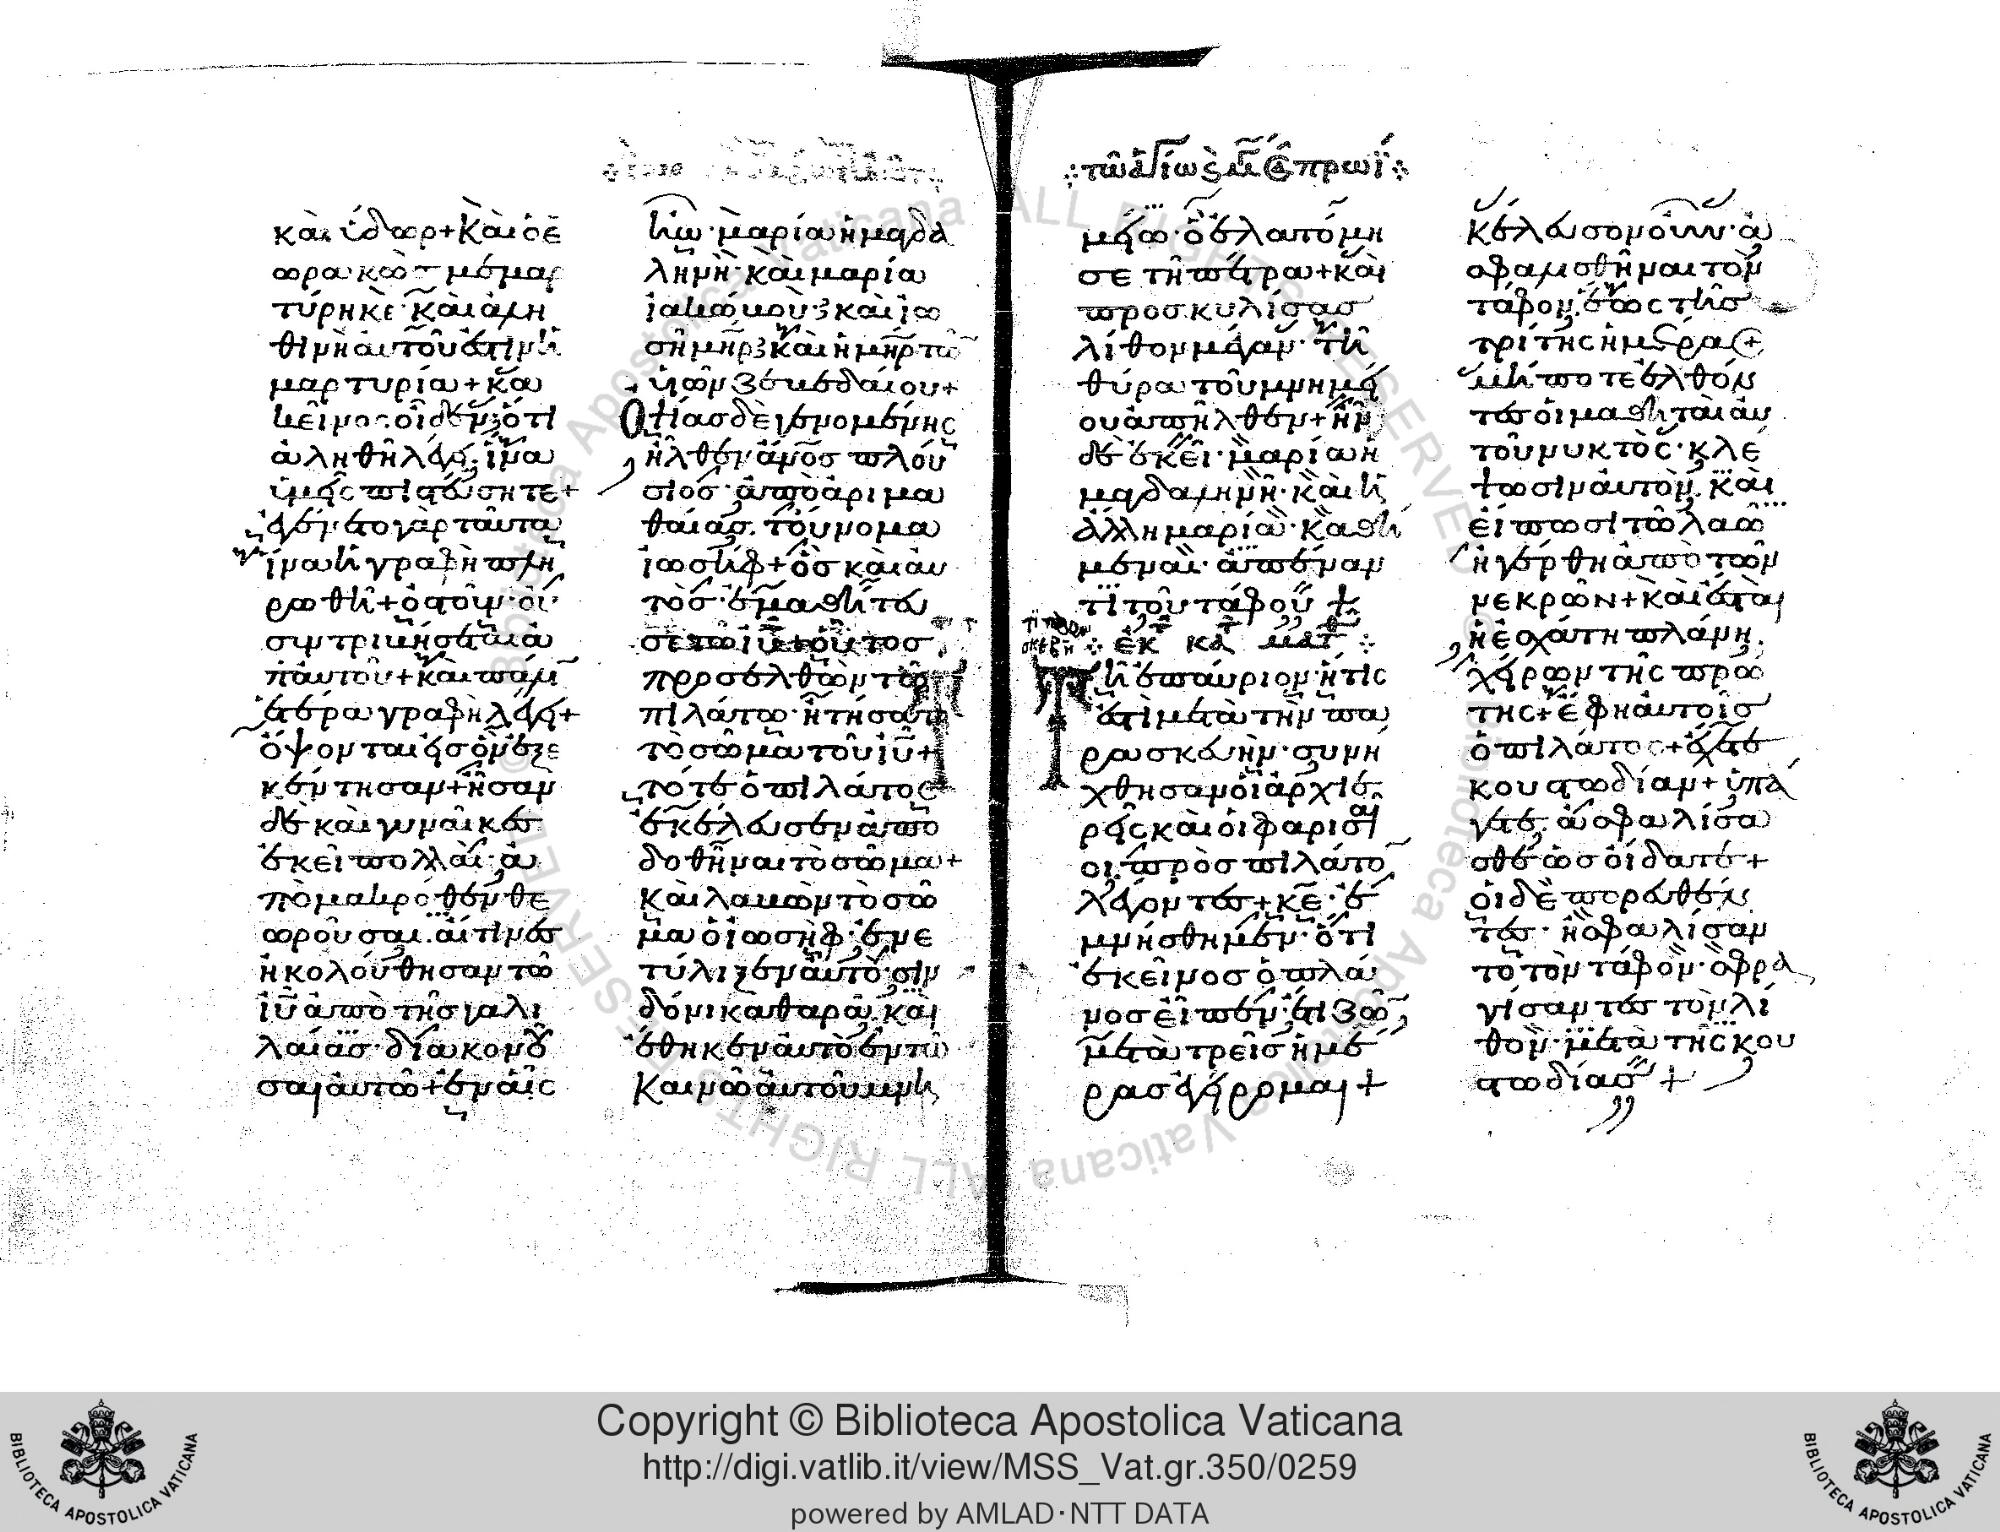 καὶ ὕδωρ + Καὶ ὁ ἑ
ωρακὼς μεμαρ
τύρηκε· καὶ ἀλη
θινὴ αὐτοῦ ἐστιν ἡ
μαρτυρία + κα
κεῖνος οἶδεν ὅτι
ἀληθῆ λέγει· ἵνα
ὑμεῖς πιστεύσητε +
ἐγένετο γὰρ ταῦτα
ἵνα ἡ γραφὴ πλη
ρωθῆ + ὀστοῦν οὐ
συντριβήσεται ἀ
π' αὐτοῦ + καὶ πάλιν
ἑτέρα γραφὴ λέγει +
ὄψονται εἰς ὃν ἐξε
κέντησαν + ἦσαν
δὲ καὶ γυναῖκες
ἐκεῖ πολλαὶ· ἀ
πὸ μακρόθεν θε
ωροῦσαι· αἵτινες
ἠκολούθησαν τῶ
ἰῦ ἀπὸ τῆς γαλι
λαίας· διακονοῦ
σαι αὐτῶ + ἐν αἷς
ἦν· μαρία ἡ μαγδα
ληνὴ· καὶ μαρία
ἰακώβου· καὶ ἰω
σῆ μηρ· καὶ ἡ μηρ τῶ
υἱῶν ζεβεδαίου +
Ὀψίας δὲ γενομένης
ἦλθεν ἄνος πλού
σιος· ἀπὸ ἀριμα
θαίας· τοὔνομα
ἰωσήφ + ὃς καὶ αὐ
τὸς· ἐμαθήτευ
σε τῶ ἰῦ + οὗτος
προσελθὼν τῶ
πιλάτω· ἠτήσατο
τὸ σῶμα τοῦ ἰῦ +
τότε ὁ πιλάτος
ἐκέλευσεν ἀπο
δοθῆναι τὸ σῶμα +
Καὶ λαβὼν τὸ σῶ
μα ὁ ἰωσὴφ· ἐνε
τύλιξεν αὐτὸ· σιν
δόνι καθαρᾶ· καὶ
ἔθηκεν αὐτὸ ἐν τῶ
Καινῶ αὐτοῦ μνη
πρωῒ
μείω· ὃ ἐλατόμη
σε τῆ πέτρα + καὶ
προσκυλίσας
λίθον μέγαν· τῆ
θύρα τοῦ μνημεί
ου ἀπῆλθεν + ἦν
δὲ ἐκεῖ· μαρία ἡ
μαγδαληνὴ· καὶ ἡ
ἄλλη μαρία· καθή
μεναι· ἀπέναν
τι τοῦ τάφου +
ἐκ κα ματ
Τῆ ἐπαύριον· ἥτις
ἐστὶ μετὰ τὴν πα
ρασκευὴν· συνή
χθησαν οἱ ἀρχιε
ρεῖς καὶ οἱ φαρισαῖ
οι· πρὸς πιλάτο
λέγοντες + κε· ἐ
μνήσθημεν· ὅτι
ἐκεῖνος ὁ πλά
νος εἶπεν· ἔτι ζῶ
μετὰ τρεῖς ἡμέ
ρας ἐγείρομαι +
Κέλευσον οὖν· ἀ
σφαλισθῆναι τὸν
τάφον· ἕως τῆς
τρίτης ἡμέρας +
μήποτε ἐλθόν
τες οἱ μαθηταὶ αὐ
τοῦ νυκτὸς· κλέ
ψωσιν αὐτὸν· καὶ
εἴπωσι τῶ λαῶ
ἠγέρθη ἀπὸ τῶν
νεκρῶν + καὶ ἔσται
ἡ ἐσχάτη πλάνη·
χείρων τῆς πρώ
της + ἔφη αὐτοῖς
ὁ πιλάτος + ἔχετε
κουστωδίαν + ὑπά
γετε· ἀσφαλίσα
σθε ὡς οἴδατε +
οἱ δὲ πορευθέν
τες· ἠσφαλίσαν
το τὸν τάφον· σφρα
γίσαντες τὸν λί
θον· μετὰ τῆς κου
στωδίας +
BIBLIOTECA APOSTOLICA VATICANA
Copyright © Biblioteca Apostolica Vaticana
http://digi.vatlib.it/view/MSS_Vat.gr.350/0259
powered by AMLAD·NTT DATA
BIBLIOTECA APOSTOLICA VATICANA